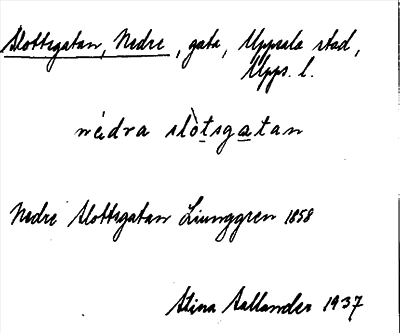 Slottsgatan, Nedre, gata, Uppsala stad,
Upps. l.
nédra slòtsgatan
Nedre Slottsgatan Ljunggren 1858
Stina Sallander 1937